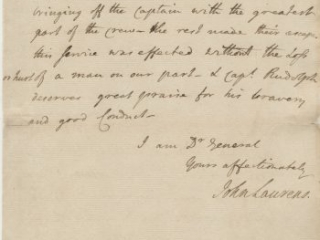 bringing off the Captain with the greatest
part of the crew – the rest made their escape
this service was effected without the loss
or hurt of a man on our part – & Capt. Rudolph
deserves great praise for his bravery
and good Conduct –
I am Dr. General
Yours affectionately
John Laurens.